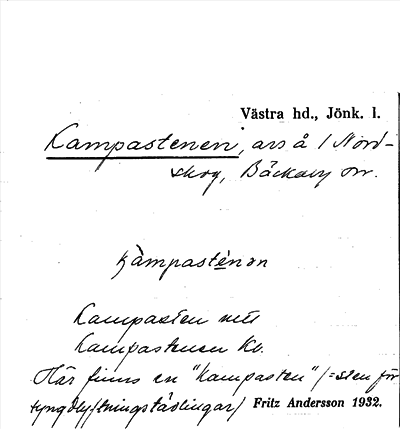 Västra hd., Jönk. l.
Kampastenen, ars å 1 Nord-
skog, Bäckaby sn.
kàmpasténɘn
Kampasten mtl
Kampastenen Kv.
Här finns en "kampasten" /=sten för
tyngdlyftningstävlingar/ Fritz Andersson 1932.